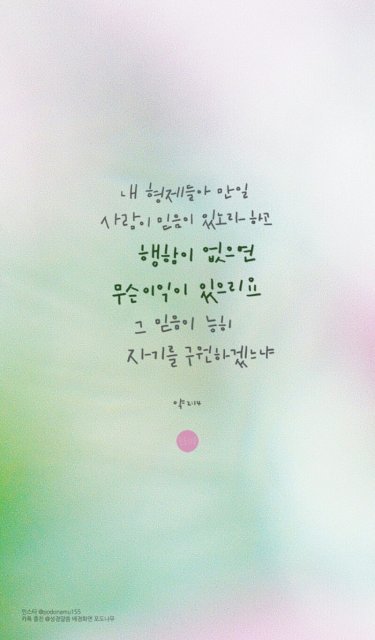 내 형제들아 만일
사람이 믿음이 있노라 하고
행함이 없으면
무슨 이익이 있으리요
그 믿음이 능히
자기를 구원하겠느냐
약 2:14
인스타 @podonamu155
카톡 출친 @성경말씀 배경화면 포도나무